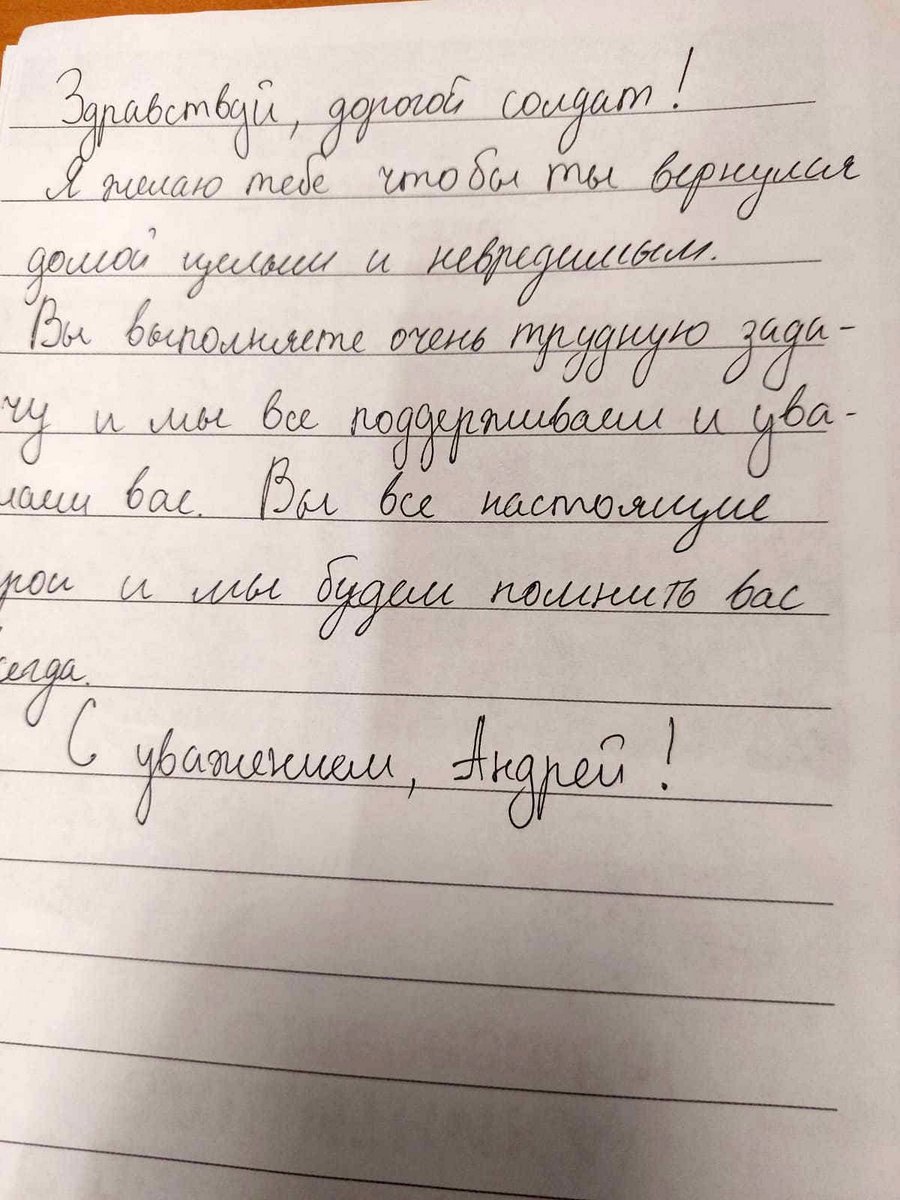 Здравствуй, дорогой солдат!
Я желаю тебе чтобы ты вернулся
домой целым и невредимым.
Вы выполняете очень трудную зада-
чу и мы все поддерживаем и ува-
вас. Вы все настоящие
и мы будем помнить вас
С уважением, Андрей!